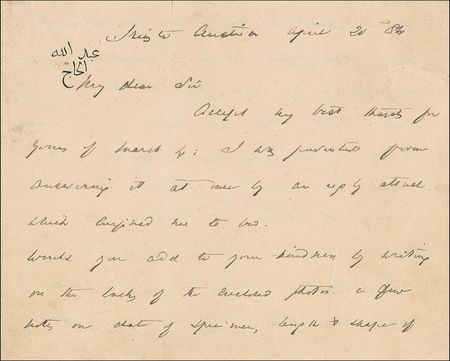 Trieste Austria April 20
عبد الله
الحاج
My dear Sir
Accept my best thanks for
yours of March 4: I was prevented from
answering it at once by an ugly attack
which confined me to bed.
Would you add to your kindness by writing
on the backs of the enclosed photos. a few
notes on date of specimen, length & shape of